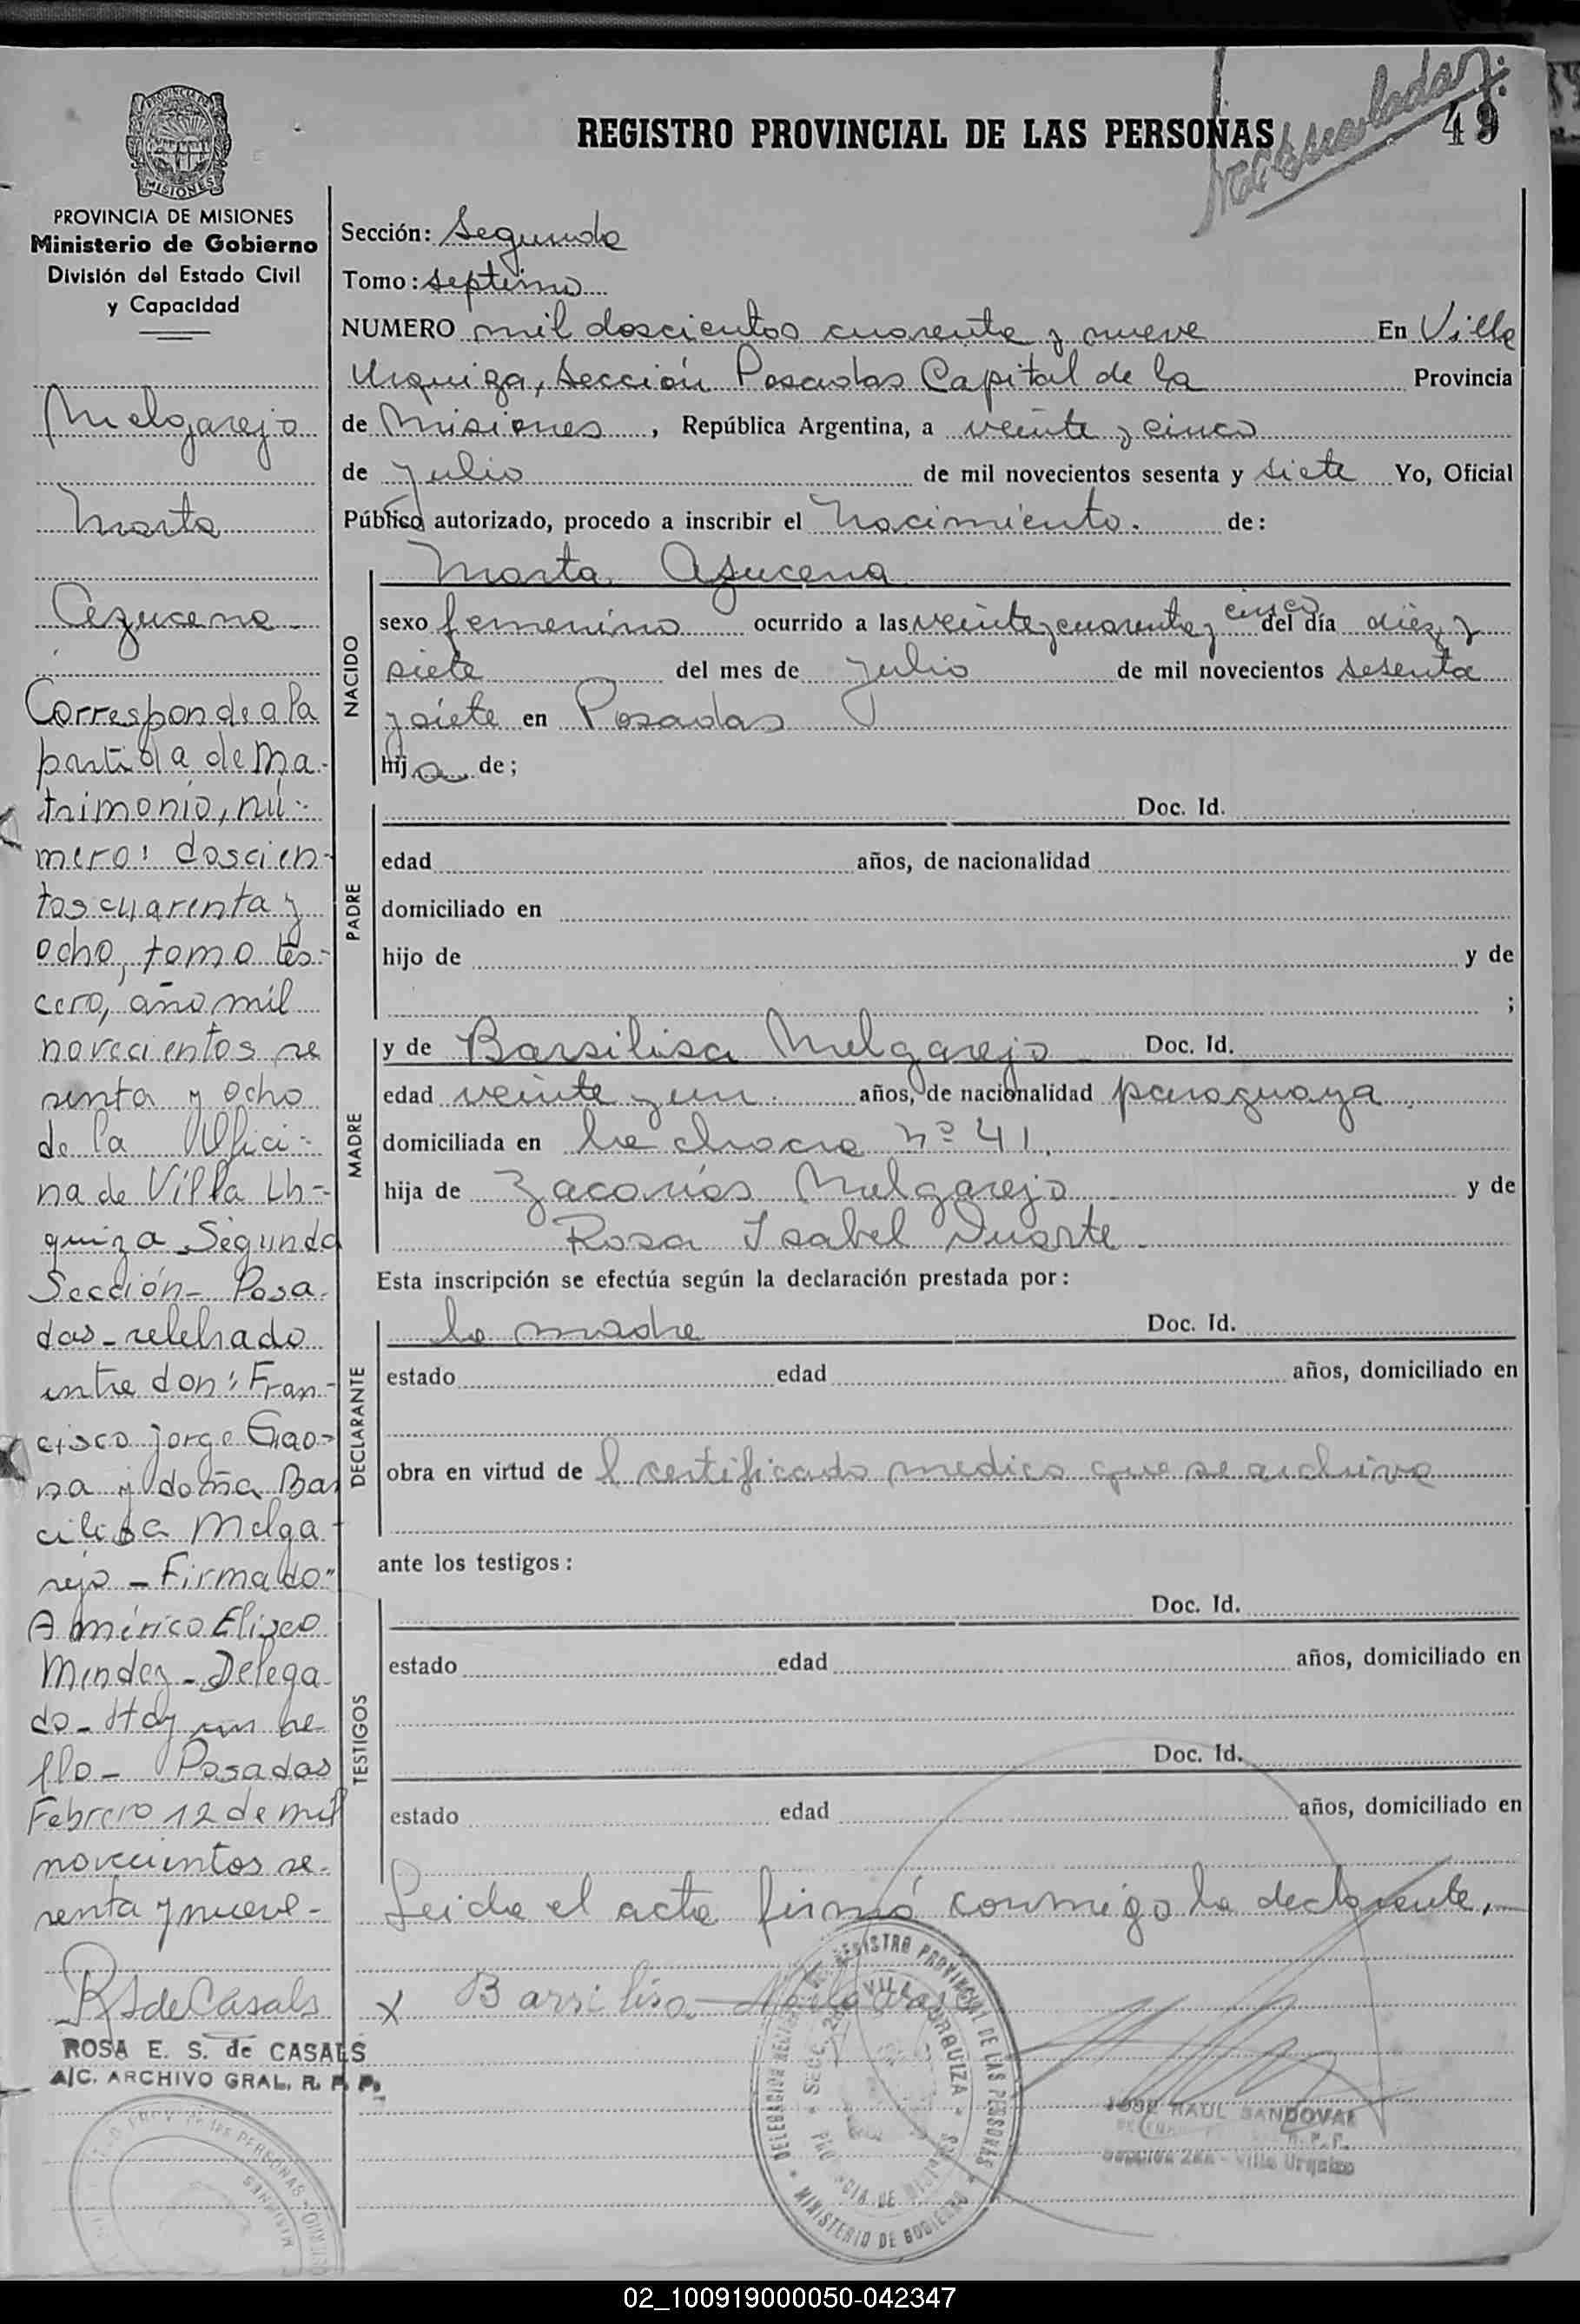 REGISTRO PROVINCIAL DE LAS PERSONAS
49
PROVINCIA DE MISIONES
Ministerio de Gobierno
División del Estado Civil
y Capacidad
Melgarejo
Marta
Azucena
Corresponde a la
partida de Ma-
trimonio, nú-
mero: doscien-
tos cuarenta y
ocho, tomo ter-
cero, año mil
novecientos se
senta y ocho
de la Ofici-
na de Villa Ur-
quiza Segunda
Sección - Posa-
das - celebrado
entre don: Fran-
cisco Jorge Gao-
na y doña Bar
cilisa Melga-
rejo - Firmado"
Américo Eliseo
Mendez - Delega
do - Hay un se-
llo - Posadas
Febrero 12 de mil
novecientos se-
senta y nueve -
ROSA E. S. de CASALS
A/C. ARCHIVO GRAL. R. P. P.
Sección: Segunda
Tomo: septimo
NUMERO mil doscientos cuarenta y nueve En Villa
Urquiza, Sección Posadas Capital de la Provincia
de Misiones, República Argentina, a veinte y cinco
de Julio de mil novecientos sesenta y siete Yo, Oficial
Público autorizado, procedo a inscribir el Nacimiento. de:
Marta Azucena
NACIDO
sexo femenino ocurrido a las veinte y cuarenta y cinco del día diez y
siete del mes de Julio de mil novecientos sesenta
y siete en Posadas
hija de;
PADRE
Doc. Id.
edad años, de nacionalidad
domiciliado en
hijo de y de
;
MADRE
y de Barsilisa Melgarejo Doc. Id.
edad veinte y un años, de nacionalidad paraguaya
domiciliada en la chacra Nº 41
hija de Zacarías Melgarejo y de
Rosa Isabel Duarte
Esta inscripción se efectúa según la declaración prestada por:
DECLARANTE
la madre Doc. Id.
estado edad años, domiciliado en
obra en virtud de l certificado medico que se archiva
ante los testigos:
TESTIGOS
Doc. Id.
estado edad años, domiciliado en
Doc. Id.
estado edad años, domiciliado en
Leida el acta firmó conmigo la declarante.
X Barsilisa Melgarejo
REGISTRO PROVINCIAL DE LAS PERSONAS
VILLA URQUIZA
MINISTERIO DE GOBIERNO
JOSE RAUL SANDOVAL
Sección 2da - Villa Urquiza
02_100919000050-042347